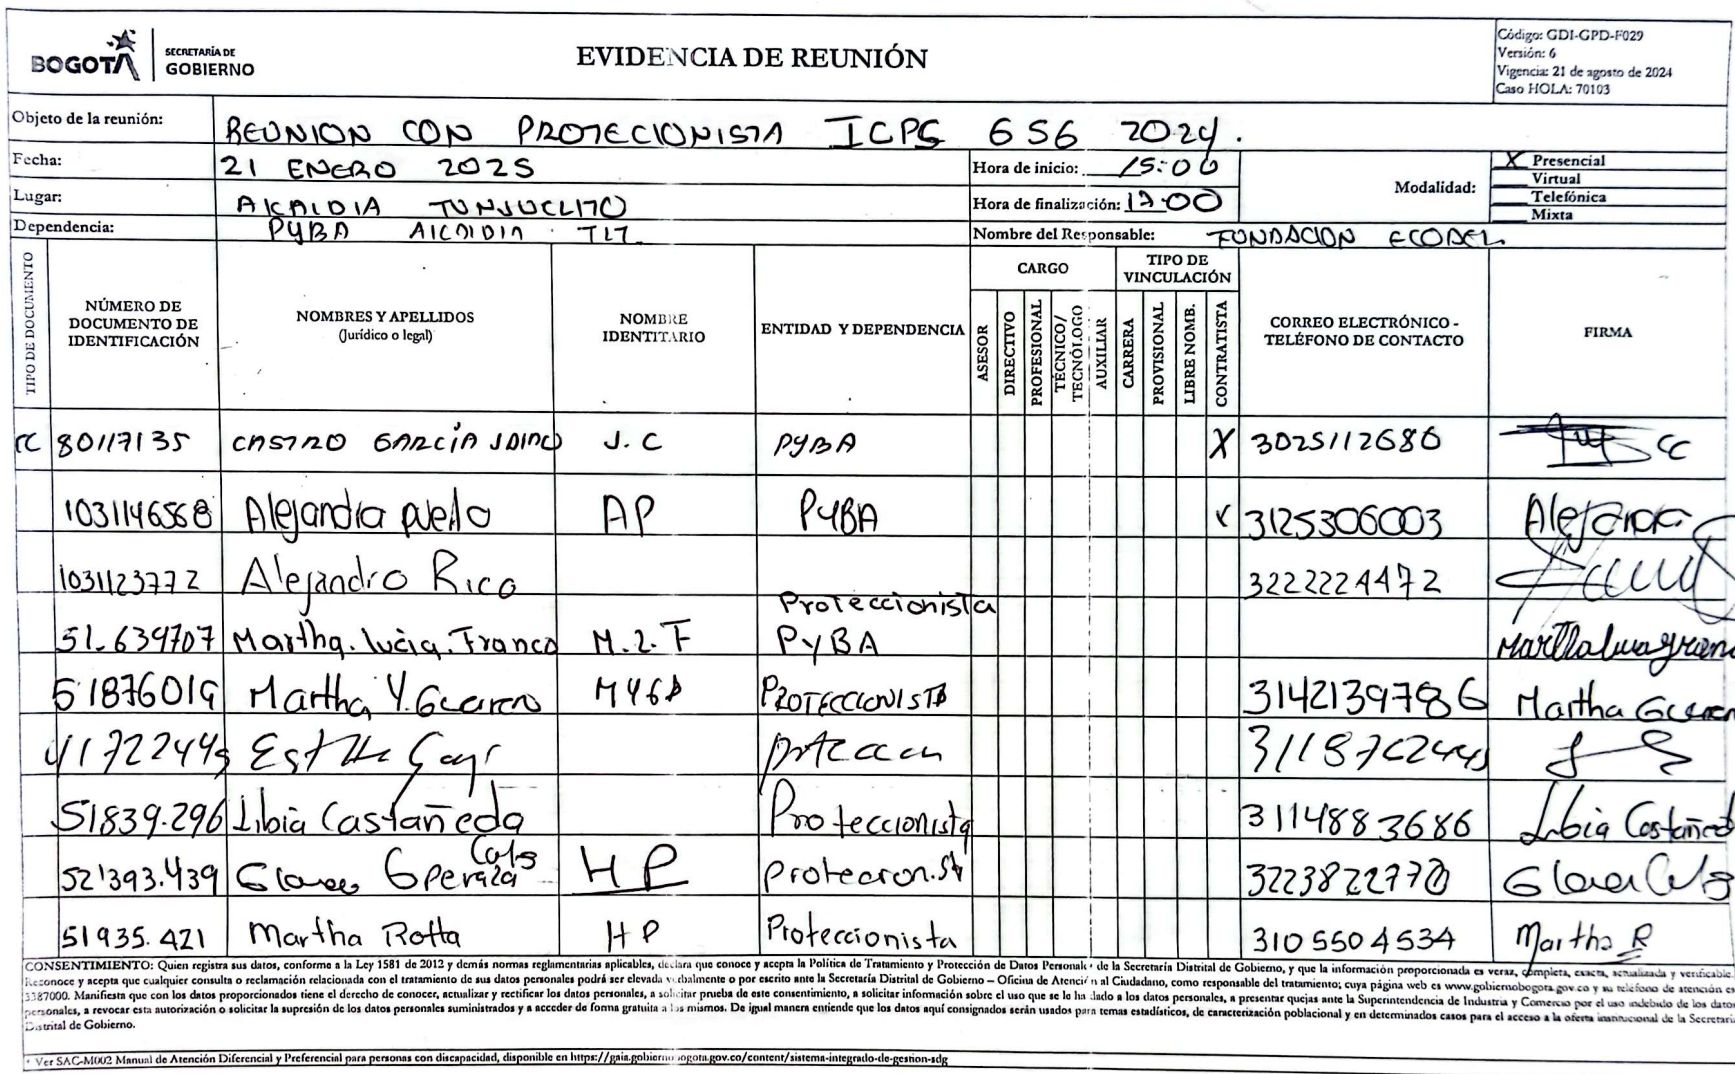 BOGOTÁ
SECRETARÍA DE
GOBIERNO
EVIDENCIA DE REUNIÓN
Código: GDI-GPD-F029
Versión: 6
Vigencia: 21 de agosto de 2024
Caso HOLA: 70103
Objeto de la reunión: REUNION CON PROTECIONISTA ICPS 656 2024.
Fecha: 21 ENERO 2025
Hora de inicio: 15:00
Lugar: AlCALDIA
Hora de finalización:
Modalidad:
X Presencial
Virtual
Telefónica
Mixta
Dependencia: PYBA TLT
Nombre del Responsable: FUNDACION
TIPO DE DOCUMENTO
NÚMERO DE DOCUMENTO DE IDENTIFICACIÓN
NOMBRES Y APELLIDOS (Jurídico o legal)
NOMBRE IDENTITARIO
ENTIDAD Y DEPENDENCIA
CARGO
ASESOR
DIRECTIVO
PROFESIONAL
TÉCNICO/ TECNÓLOGO
AUXILIAR
TIPO DE VINCULACIÓN
CARRERA
PROVISIONAL
LIBRE NOMB.
CONTRATISTA
CORREO ELECTRÓNICO - TELÉFONO DE CONTACTO
FIRMA
CC 80117135 CASTRO GARCÍA J.C PYBA X 3025112686
Alejandra AP PYBA 3125306003 Alejandra
1031123772 Alejandro Rico 3222224472
51.639707 Martha. lucia. Franco M.L.F Proteccionista PyBA
51876019 Martha Y. PROTECCIONISTA 3142139786 Martha
51839.296 Libia Castañeda Proteccionista 3114883686 Libia
52'393.439 HP
51935.421 Martha Rotta HP Proteccionista 3105504534 Martha R
CONSENTIMIENTO: Quien registra sus datos, conforme a la Ley 1581 de 2012 y demás normas reglamentarias aplicables, declara que conoce y acepta la Política de Tratamiento y Protección de Datos Personal de la Secretaría Distrital de Gobierno, y que la información proporcionada es veraz, completa, exacta, actualizada y verificable.
Reconoce y acepta que cualquier consulta o reclamación relacionada con el tratamiento de sus datos personales podrá ser elevada verbalmente o por escrito ante la Secretaría Distrital de Gobierno – Oficina de Atención al Ciudadano, como responsable del tratamiento; cuya página web es www.gobiernobogota.gov.co y su teléfono de atención es
3387000. Manifiesta que con los datos proporcionados tiene el derecho de conocer, actualizar y rectificar los datos personales, a solicitar prueba de este consentimiento, a solicitar información sobre el uso que se le ha dado a los datos personales, a presentar quejas ante la Superintendencia de Industria y Comercio por el uso indebido de los datos
personales, a revocar esta autorización o solicitar la supresión de los datos personales suministrados y a acceder de forma gratuita a los mismos. De igual manera entiende que los datos aquí consignados serán usados para temas estadísticos, de caracterización poblacional y en determinados casos para el acceso a la oferta institucional de la Secretaría
Distrital de Gobierno.
Ver SAC-M002 Manual de Atención Diferencial y Preferencial para personas con discapacidad, disponible en https://gaia.gobiernobogota.gov.co/content/sistema-integrado-de-gestion-sdg